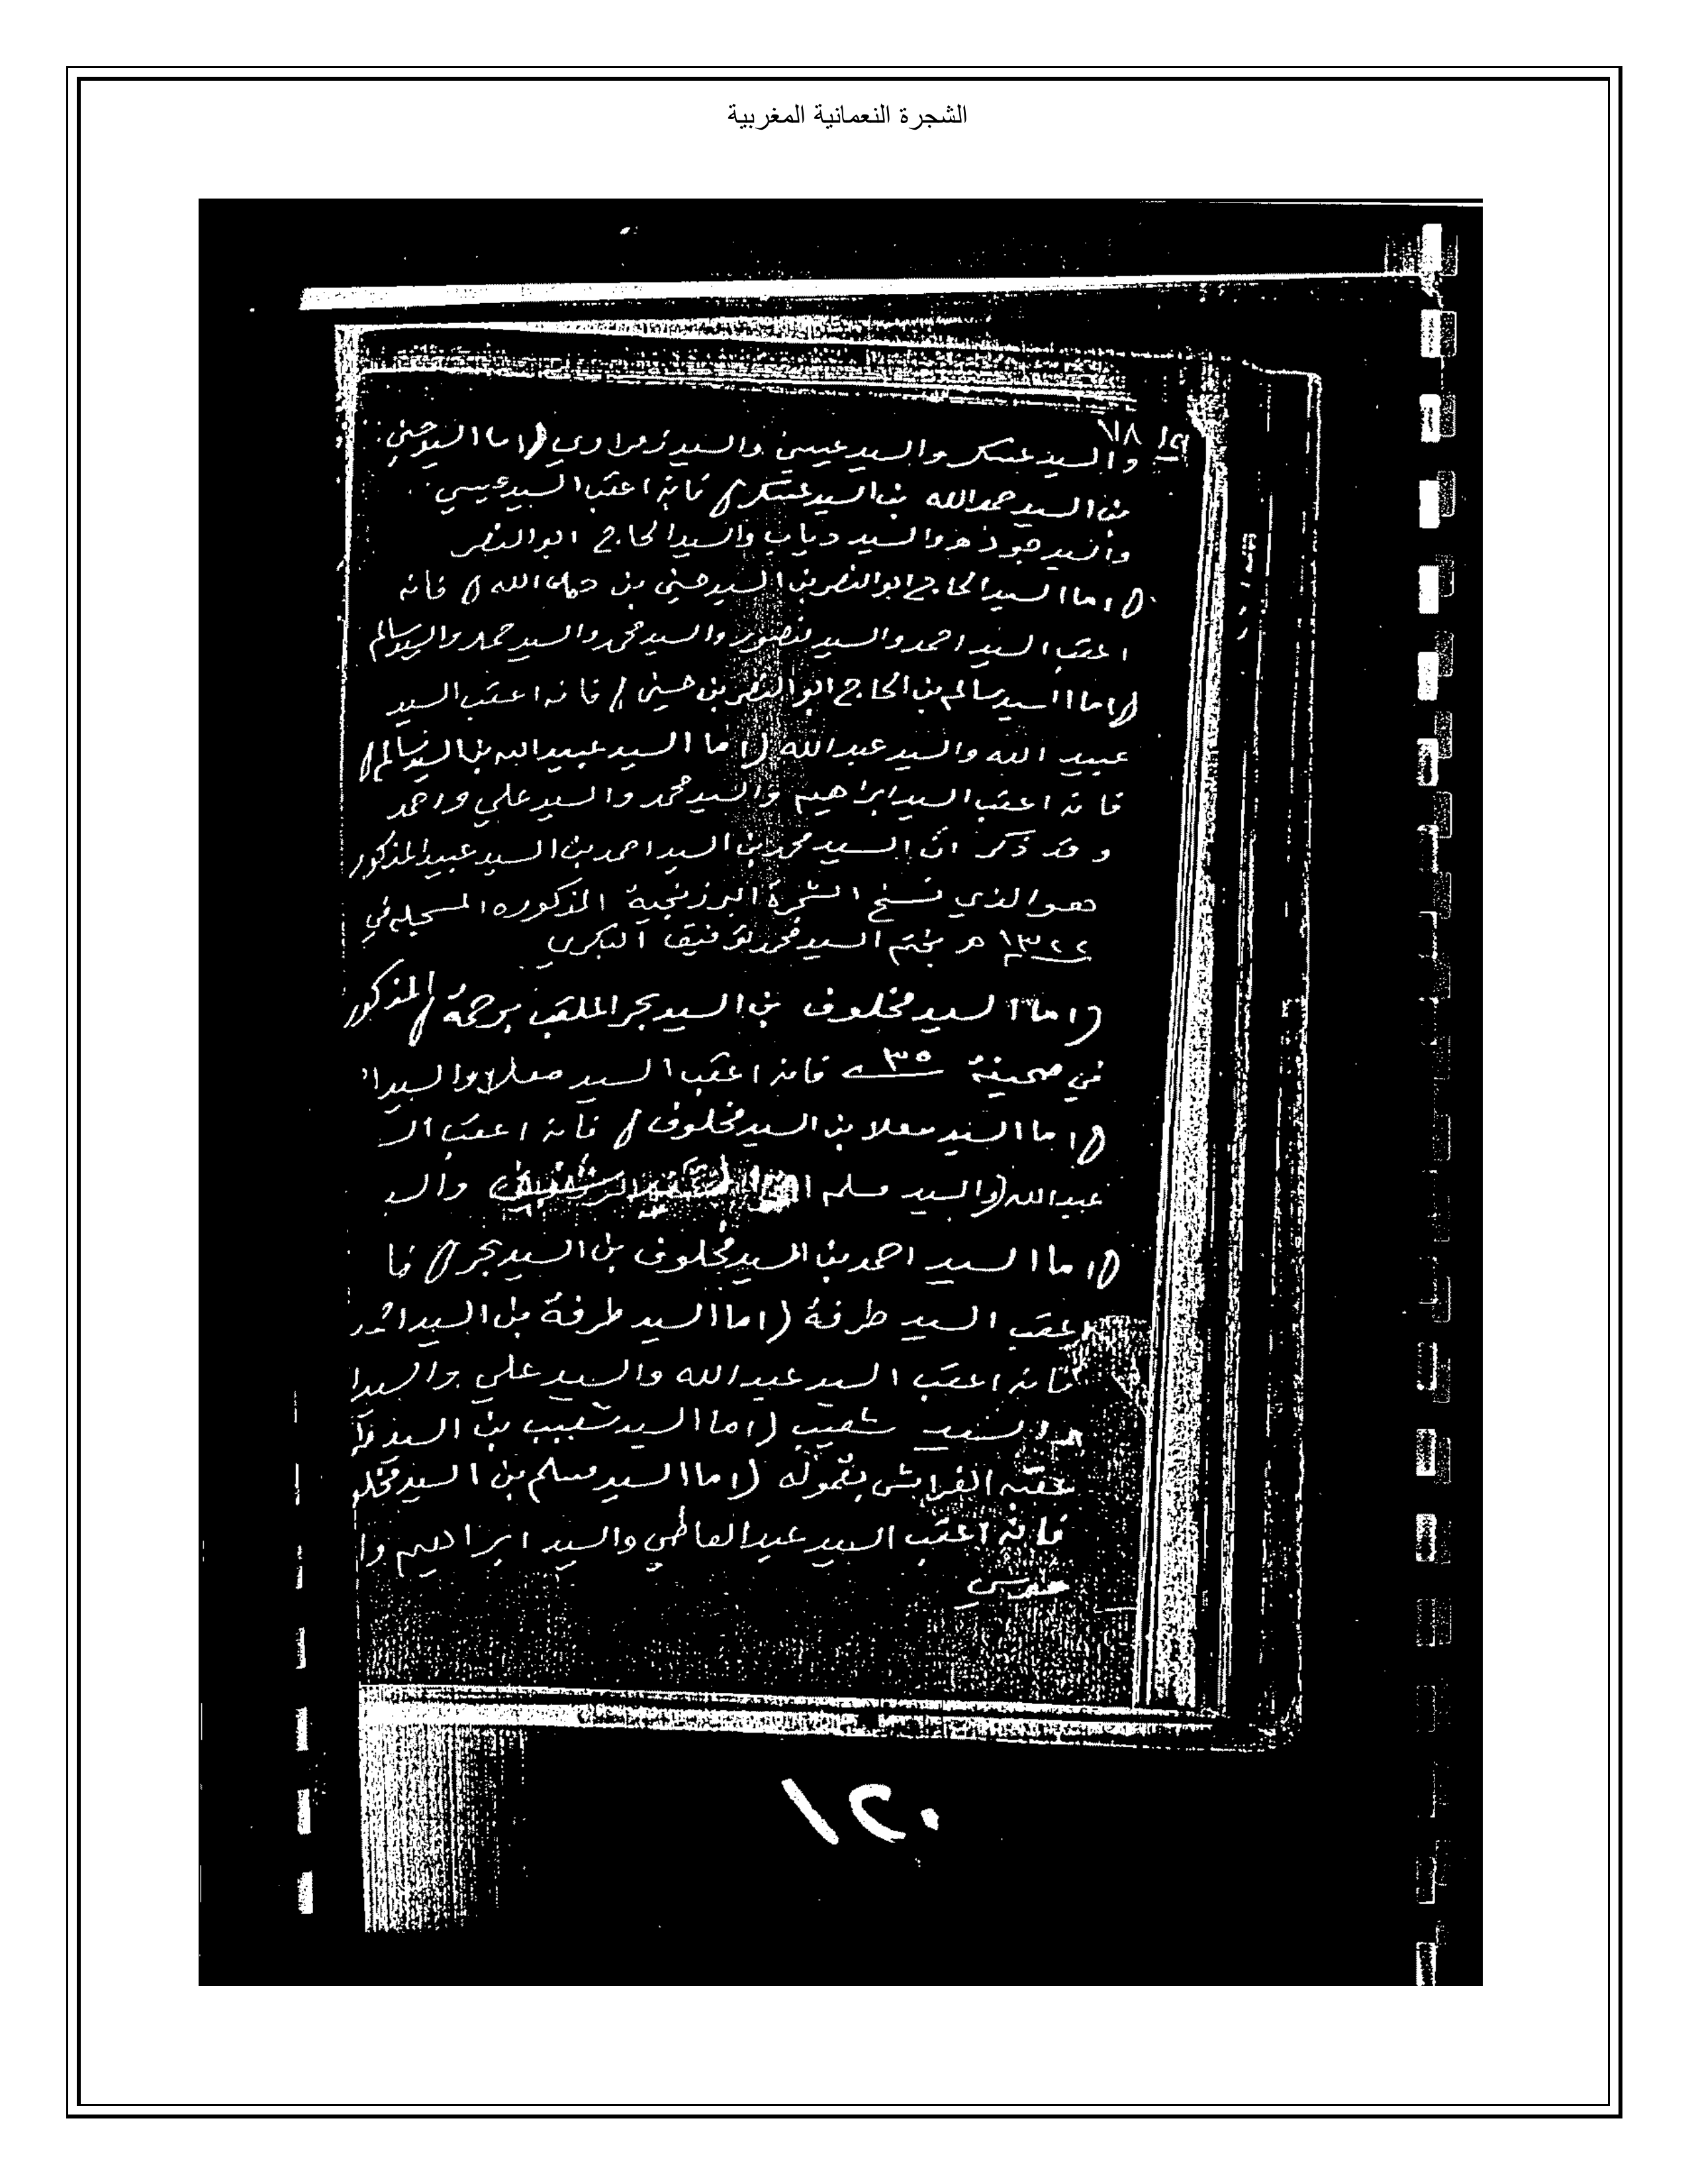 الشجرة النعمانية المغربية
١١٨
والسيد عسكر والسيد عيسى والسيد زعراوي (اما السيد حسني
بن السيد حمد الله بن السيد عسكر) فانه اعقب السيد عيسى
والسيد جوذه والسيد دياب والسيد الحاج ابو النصر
(اما السيد الحاج ابو النصر بن السيد حسني بن حمد الله) فانه
اعقب السيد احمد والسيد منصور والسيد محمد والسيد حمد والسيد سالم
(اما السيد سالم بن الحاج ابو النصر بن حسني) فانه اعقب السيد
عبيد الله والسيد عبد الله (اما السيد عبيد الله بن السيد سالم)
فانه اعقب السيد ابراهيم والسيد محمد والسيد علي واحمد
وقد ذكر ان السيد محمد بن السيد احمد بن السيد عبيد المذكور
هو الذي نسخ الشجرة البرزنجية المذكوره المسجله في
١٣٢٢ هـ بختم السيد محمد توفيق البكري
(اما السيد مخلوف بن السيد بحر الملقب برحمة) المذكور
في صحيفة ٣٥ فانه اعقب السيد معلا والسيد ا
(اما السيد معلا بن السيد مخلوف) فانه اعقب الـ
عبد الله (والسيد مسلم والـ
(اما السيد احمد بن السيد مخلوف بن السيد بحر) فا
اعقب السيد طرفة (اما السيد طرفة بن السيد احمد
فانه اعقب السيد عبد الله والسيد علي والسيد ا
والسيد شعيب (اما السيد شعيب بن السيد
عقبه الفرايش بقموله (اما السيد مسلم بن السيد مخلو
فانه اعقب السيد عبد العاطي والسيد ابراهيم وا
١٢٠